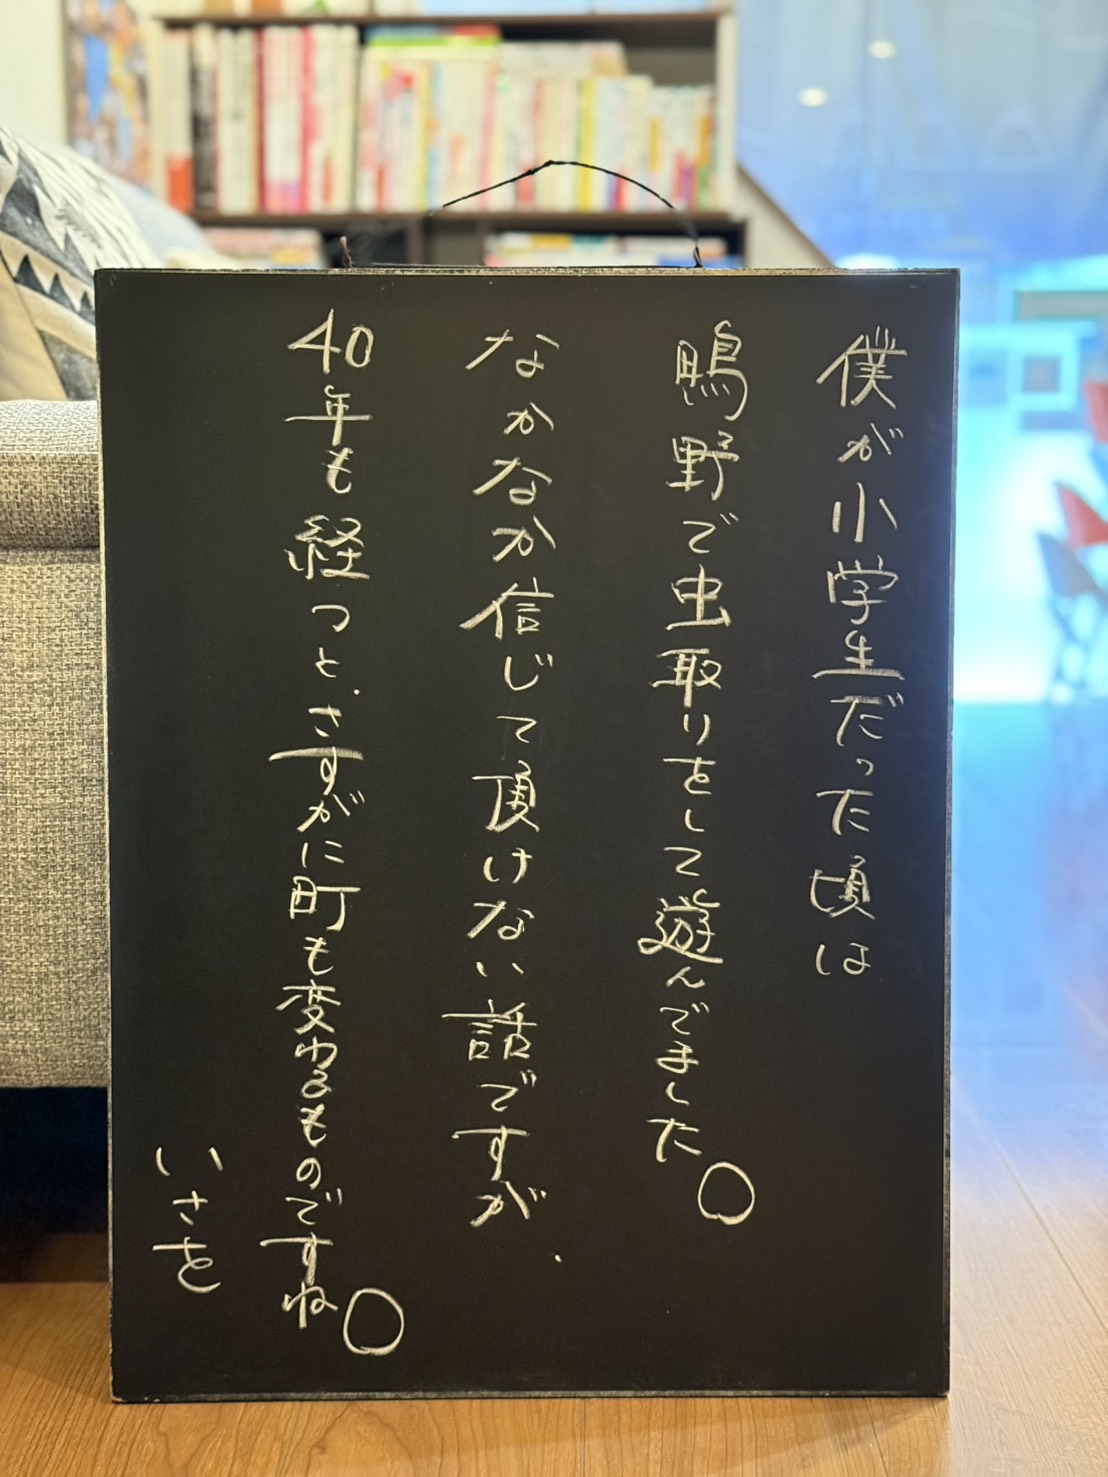 僕が小学生だった頃は
鴫野で虫取りをして遊んでました。
なかなか信じて頂けない話ですが、
40年も経つと、さすがに町も変わるものですね。
いさを